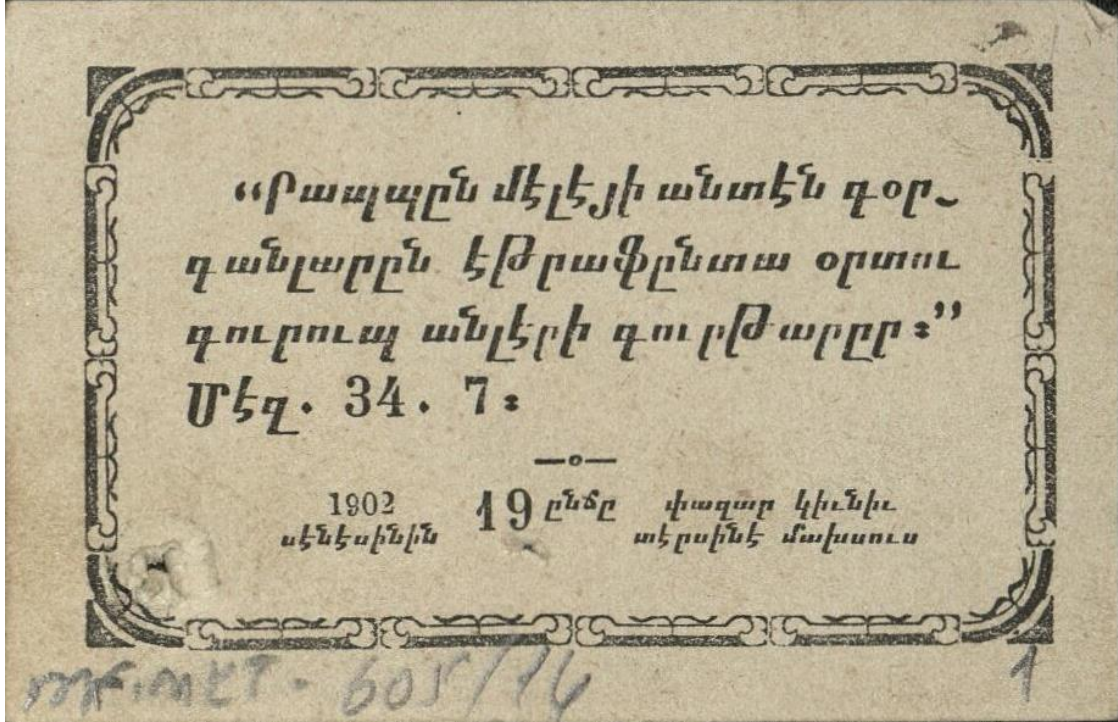 “Րապպըն մէլէյի անտէն գօր֊
գանլարըն էթրաֆընտա օրտու
գուրուպ անլէրի գուրթարըր ։”
Մէզ. 34. 7 ։
1902 19 ընճը փազար կիւնիւ
սէնէսինին տէրսինէ մախսուս
605/14
1